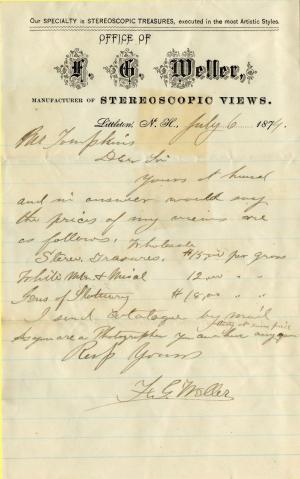 Our SPECIALTY is STEREOSCOPIC TREASURES, executed in the most Artistic Styles.
OFFICE OF
F. G. Weller,
MANUFACTURER OF STEREOSCOPIC VIEWS.
Littleton, N. H., July 6 1874.
Tompkins
Dear Sir
Yours at hand
and in answer would say
the prices of my views are
as follows. Wholesale
Stereo Treasures. $15.00 per gross
White Mts & 12.00 " "
Gems of Statuary $18.00 " "
I send Catalogue by mail
As you are a Photographer you can have any
Resp Yours
F. G. Weller